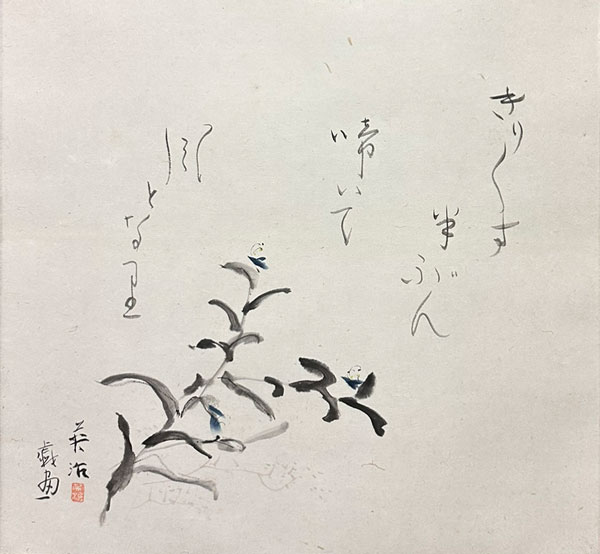 きり〱す
半ぶん
啼いて
風
とな里
英治
戯画